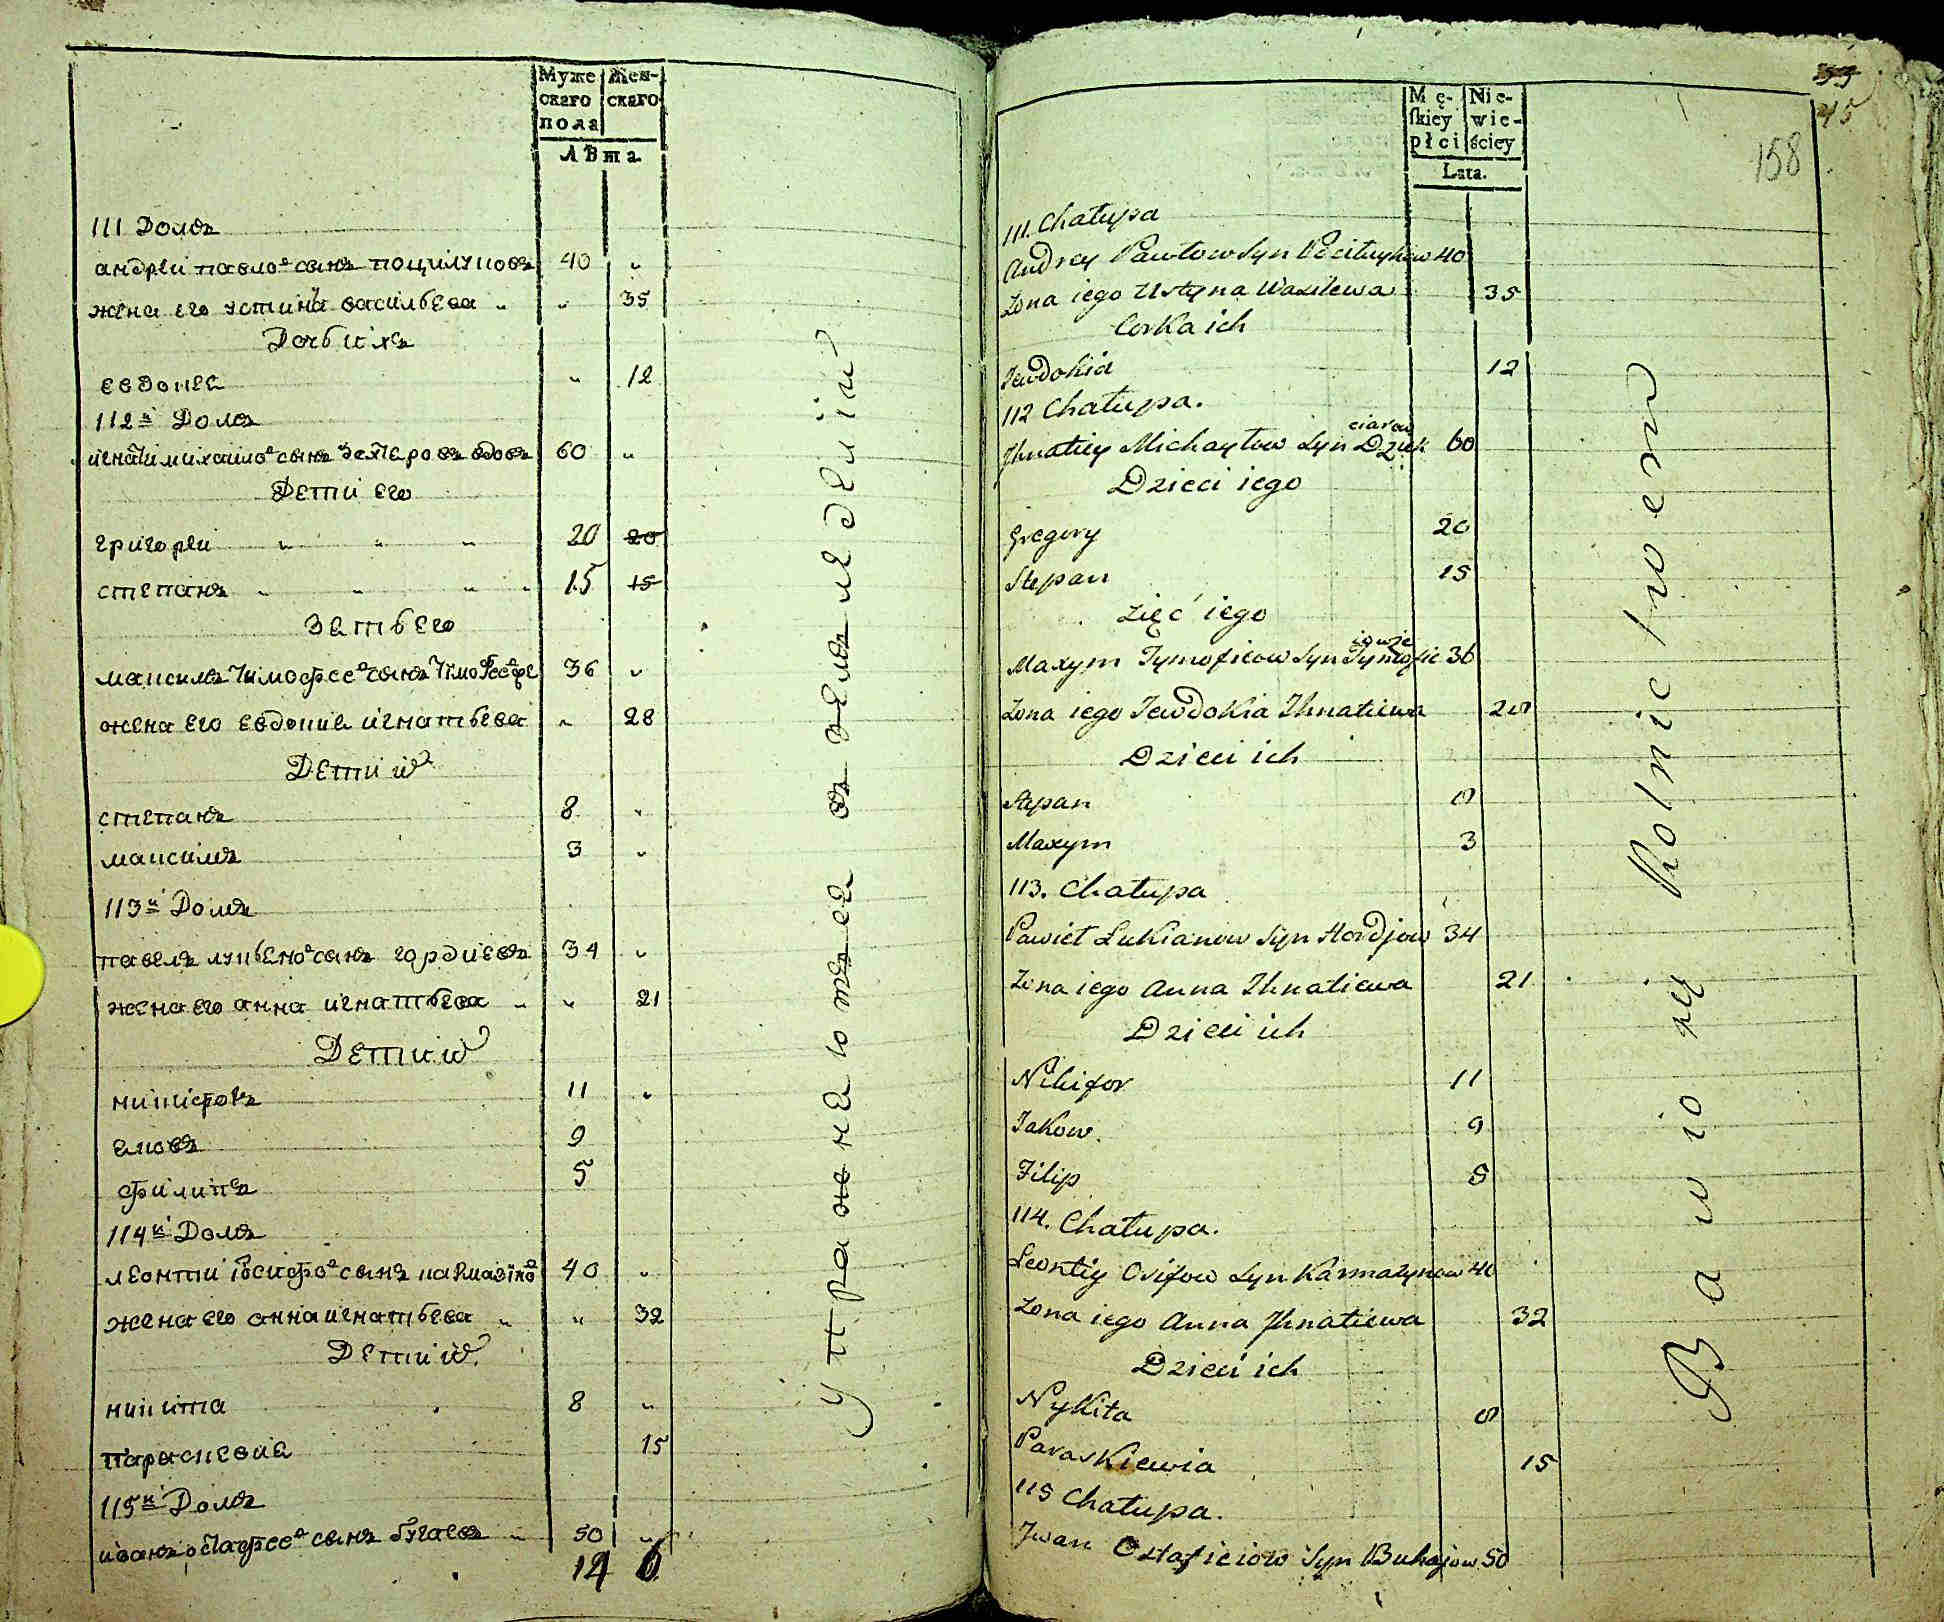 Муже
скаго
пола
Жен-
скаго
Лѣта
111 Домъ
андреи павло сынъ поцилуповъ 40 "
жена его устина васильева " " 35
Дочь ихъ
евдокея " 12
112й Домъ
игнати михаило сынъ вдовъ 60 "
Дети его
григореи " " " 20 20
степанъ " " " " 15 15
Зать его
максимъ тимофее сынъ 36 "
жена его евдокие игнатьева " 28
Дети их
степанъ 8 "
максимъ 3 "
113й Домъ
павелъ лукьено сынъ гордиевъ 34 "
жена его анна игнатьева " " 21
Дети их
никифоръ 11 "
яковъ 9
филипъ 5
114й Домъ
леонти иосифо сынъ кармазино 40 "
жена его анна игнатьева " " 32
Дети их
никита 8 "
параскевие 15
115й Домъ
иванъ остафее сынъ бугаевъ " 50 "
12 6
Упражнаютъся въ земледелии
55
45
158
Mę-
skiey
płci
Nie-
wie-
ściey
Lata.
111. Chałupa
Andrey Pawłow Syn 40
Żona iego Ustyna Wasilewa 35
Corka ich
Jewdokia 12
112 Chałupa.
ciarow
Ihnatiy Michayłow Syn Dziek 60
Dzieci iego
Gregory 20
Stepan 15
Zięć iego
iowie
Maxym Tymofieow Syn Tymofie 36
Żona iego Jewdokia Ihnatiewa 28
Dzieci ich
Stepan 8
Maxym 3
113. Chałupa
Paweł Łukianow Syn Hordjow 34
Żona iego Anna Ihnatiewa 21
Dzieci ich
Nikifor 11
Jakow. 9
Filip 5
114. Chałupa.
Leontiy Osifow Syn Karmazynow 40
Żona iego Anna Ihnatiewa 32
Dzieci ich
Nykita 8
Paraskiewia 15
115 Chałupa.
Jwan Ostafieiow Syn Buhajow 50
Bawio się Rolnictwem